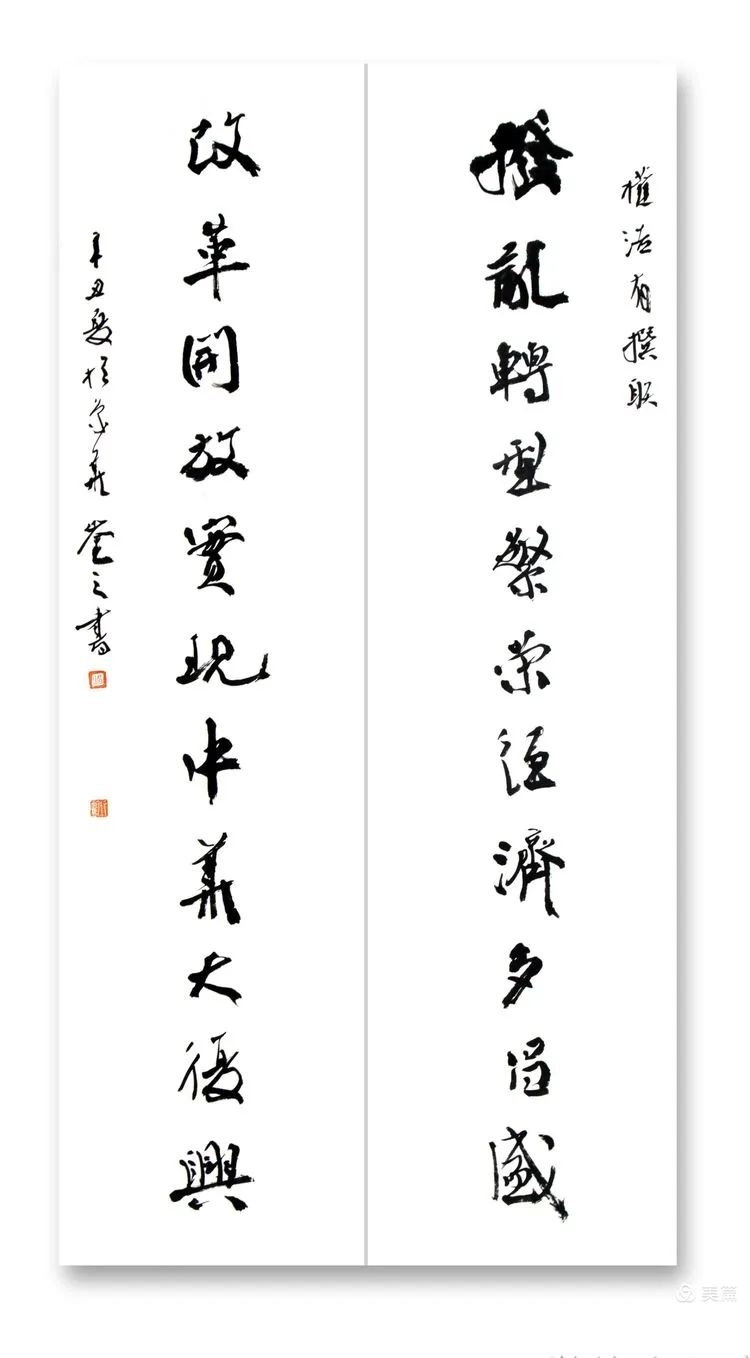 有撰聯
撥亂轉型繁榮經濟多昌盛
改革開放實現中華大復興
辛丑夏於京華之書
美篇